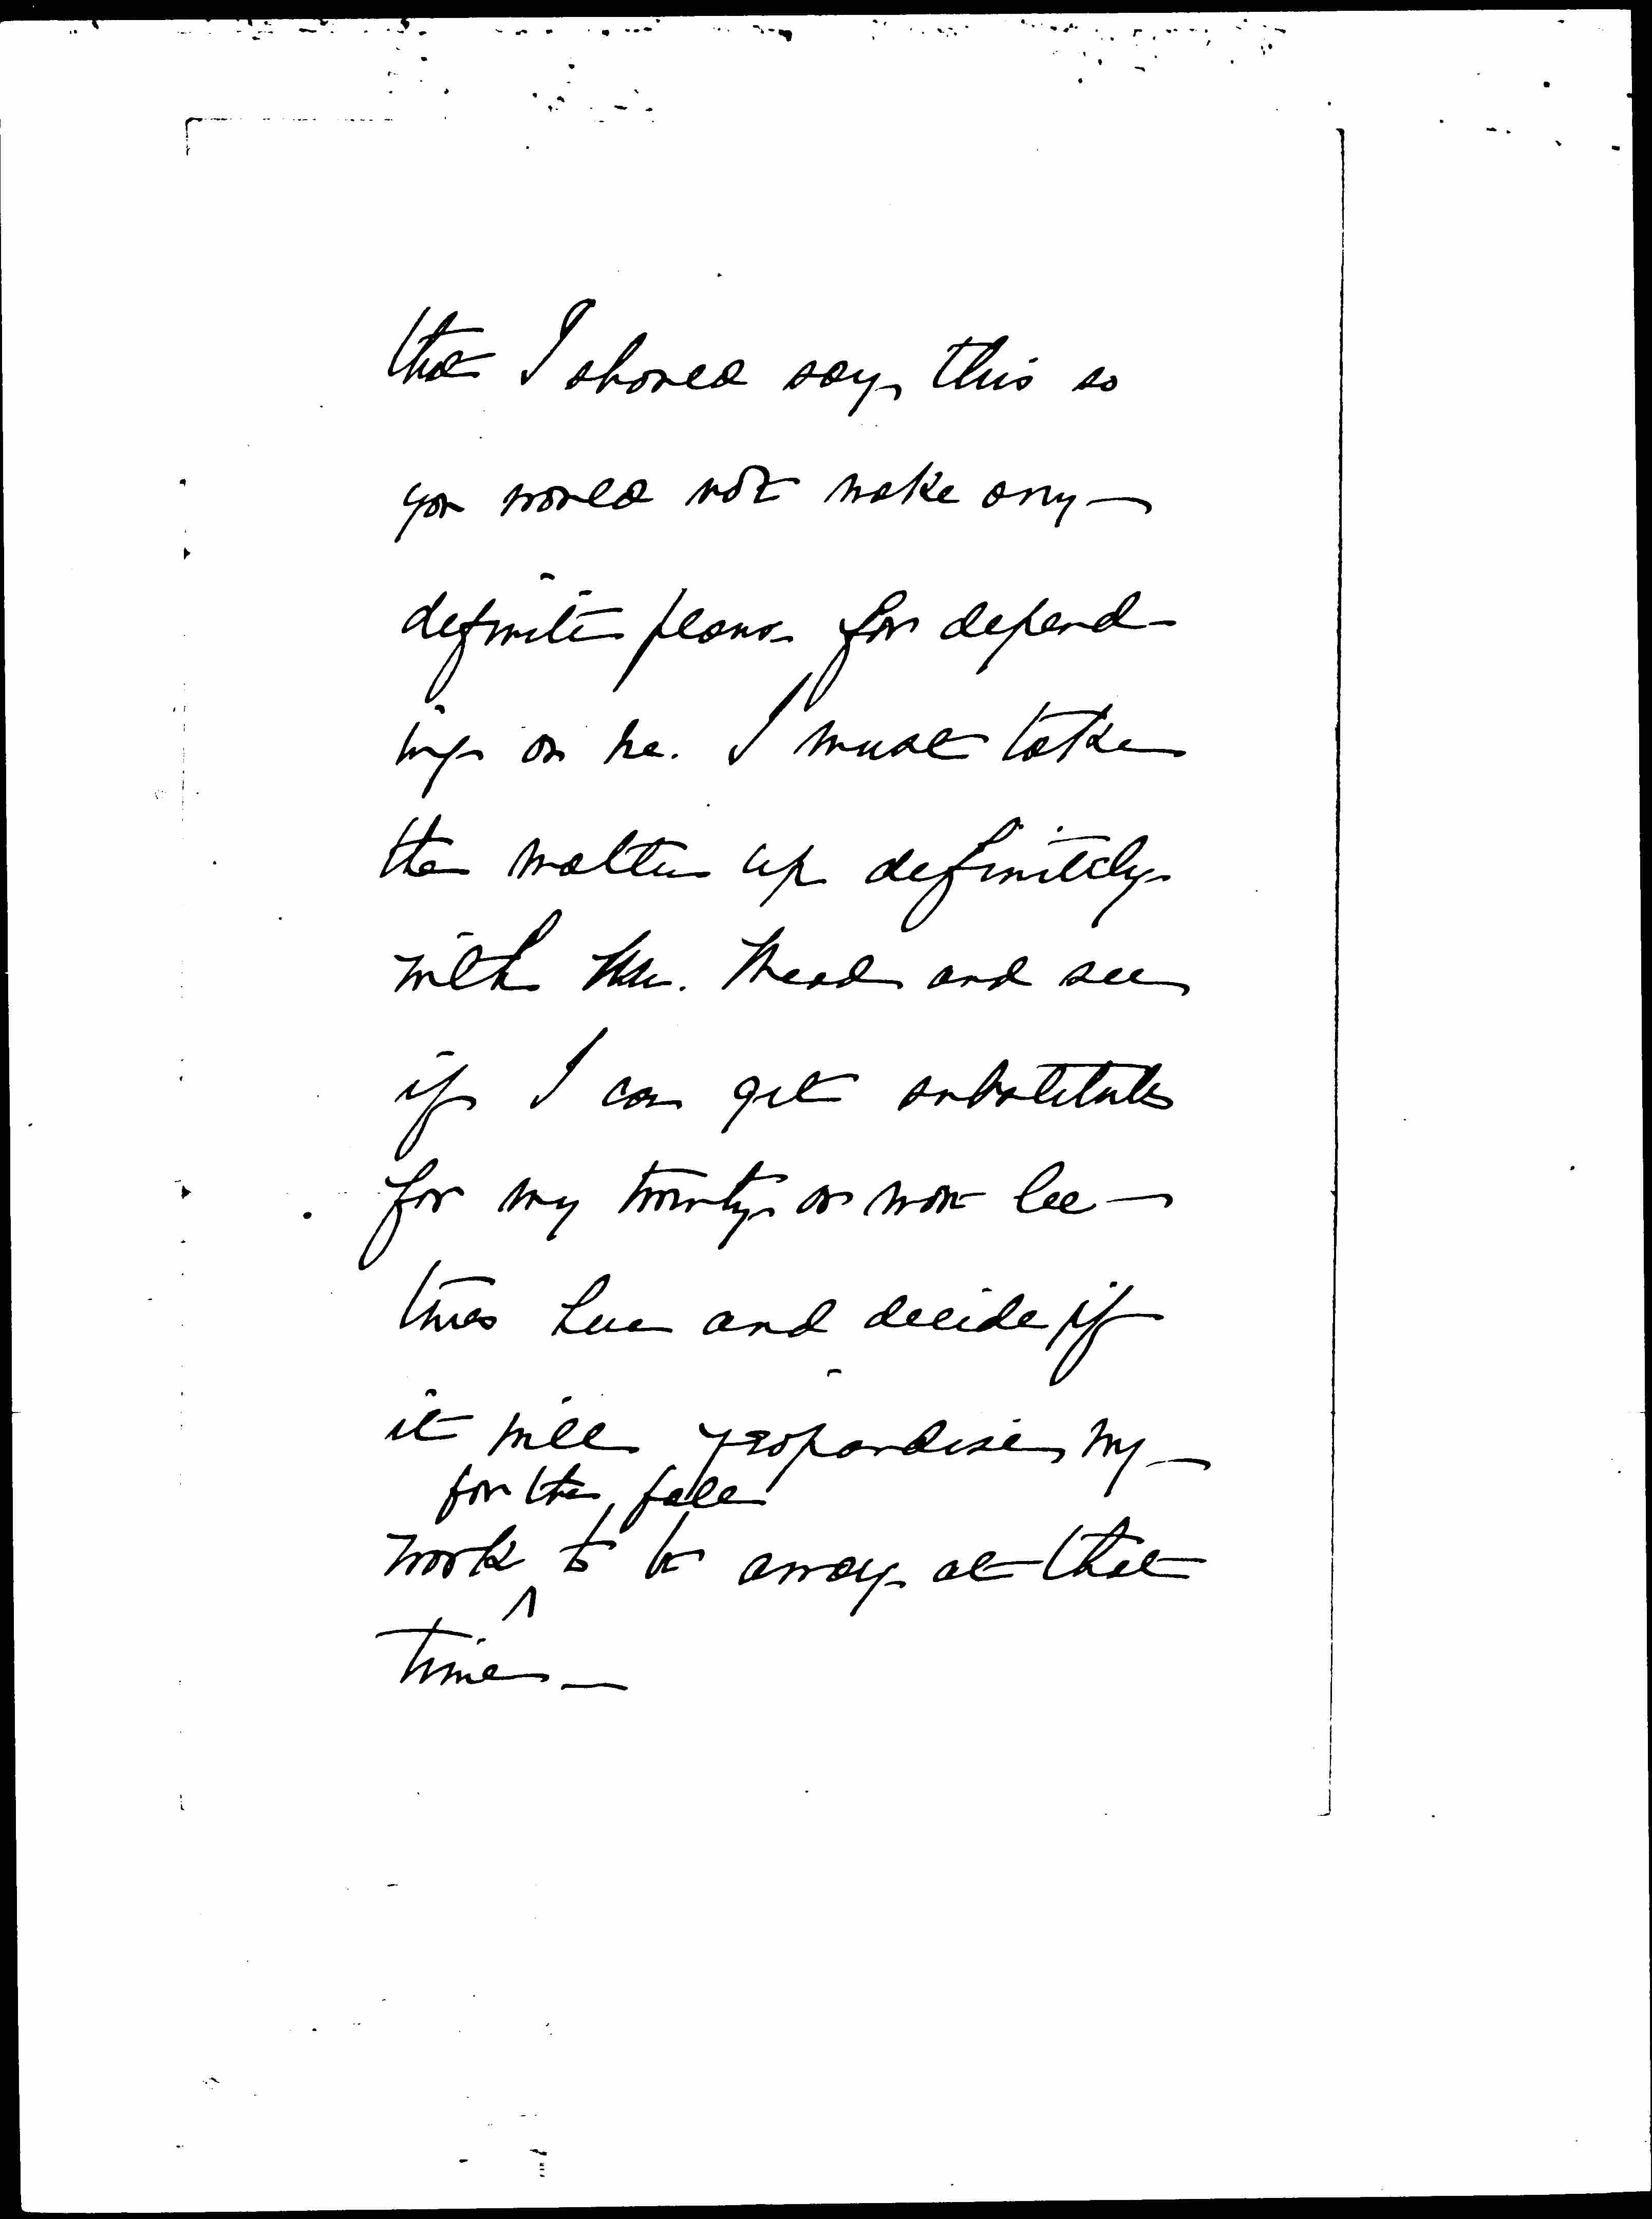 that I should say this so
you would not make any
definite plans for depend-
ing on me. I must take
the matter up definitely
with Mr. Mead and see
if I can get substitutes
for my twenty or more lec-
tures here and decide if
it will jeopardise my
for the fall
work ^ to be away at that
time —